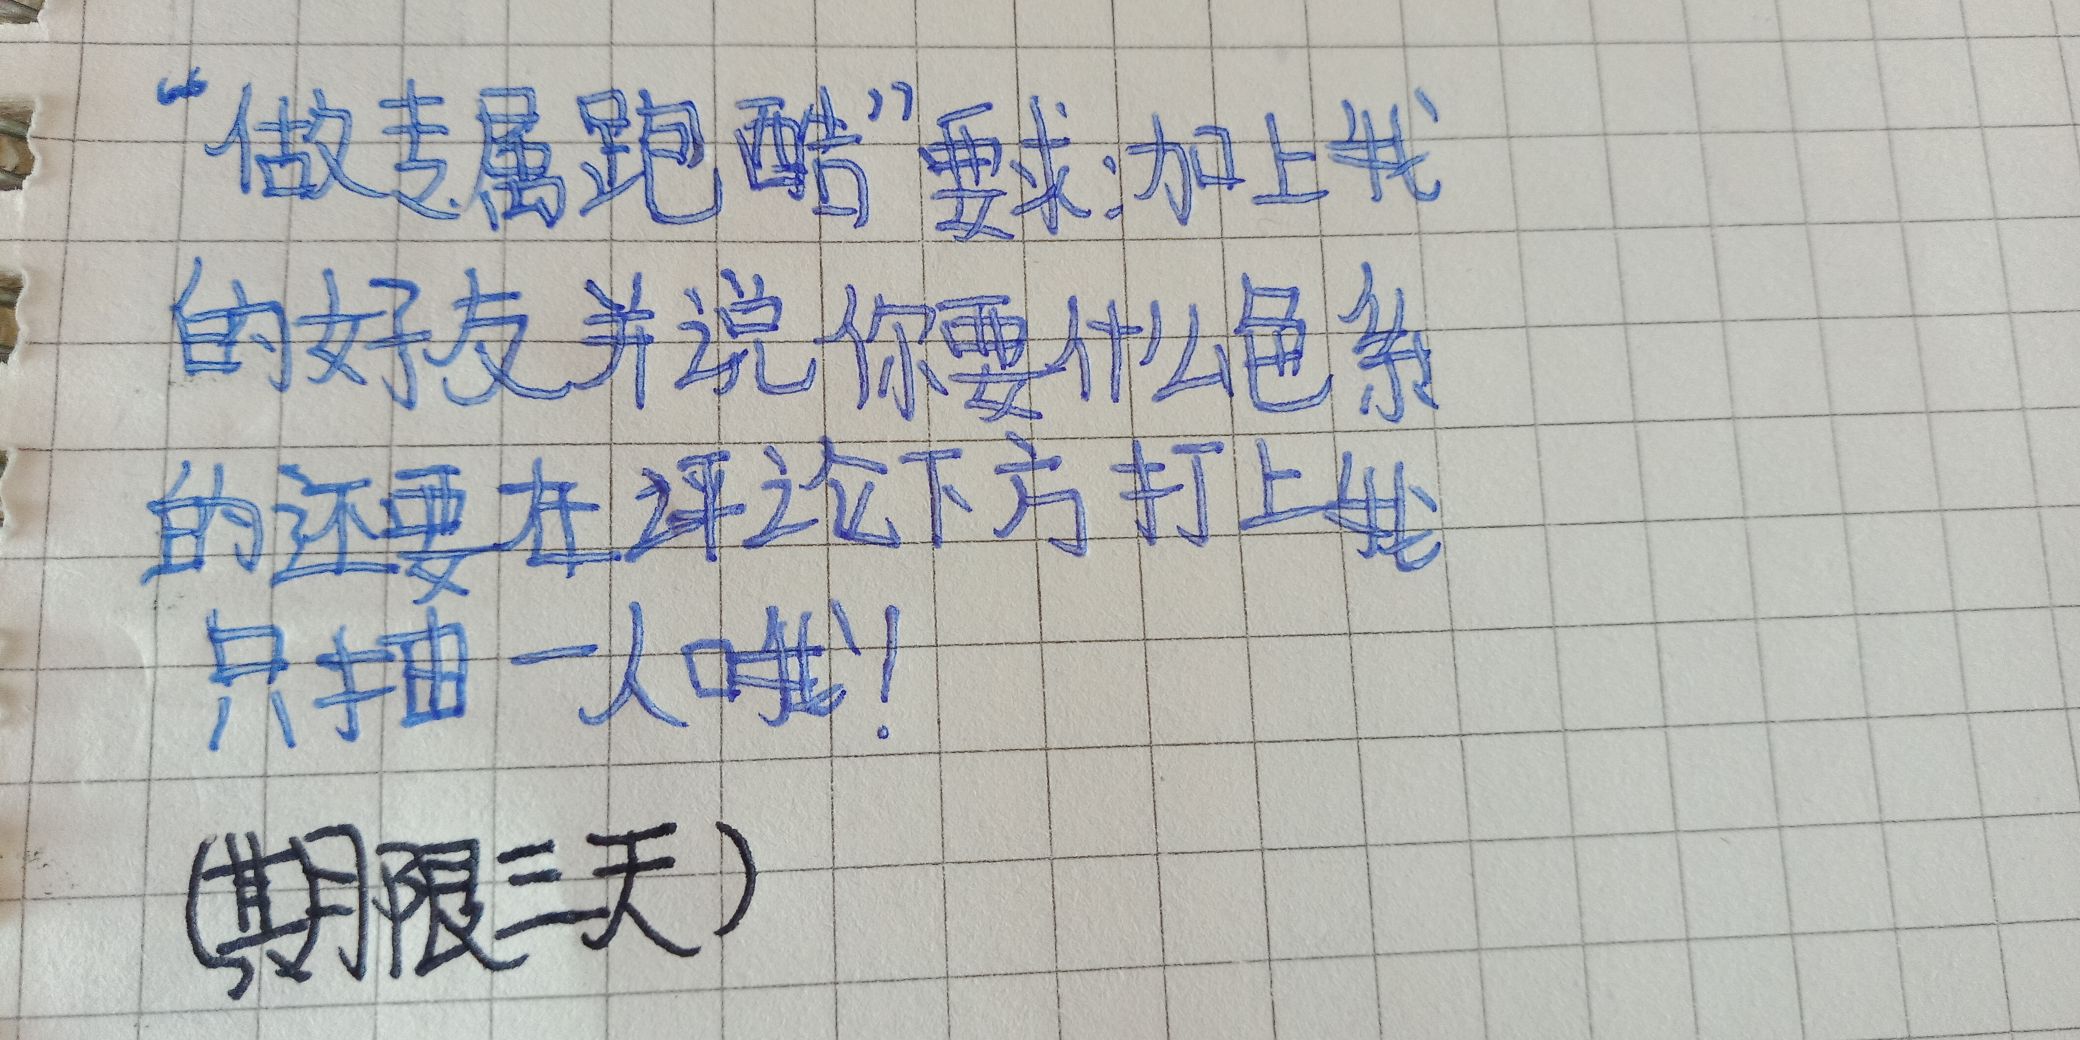 “做专属跑酷”要求:加上我
的好友并说你要什么色系
的还要在评论下方打上我
只抽一人哦!
(期限三天)